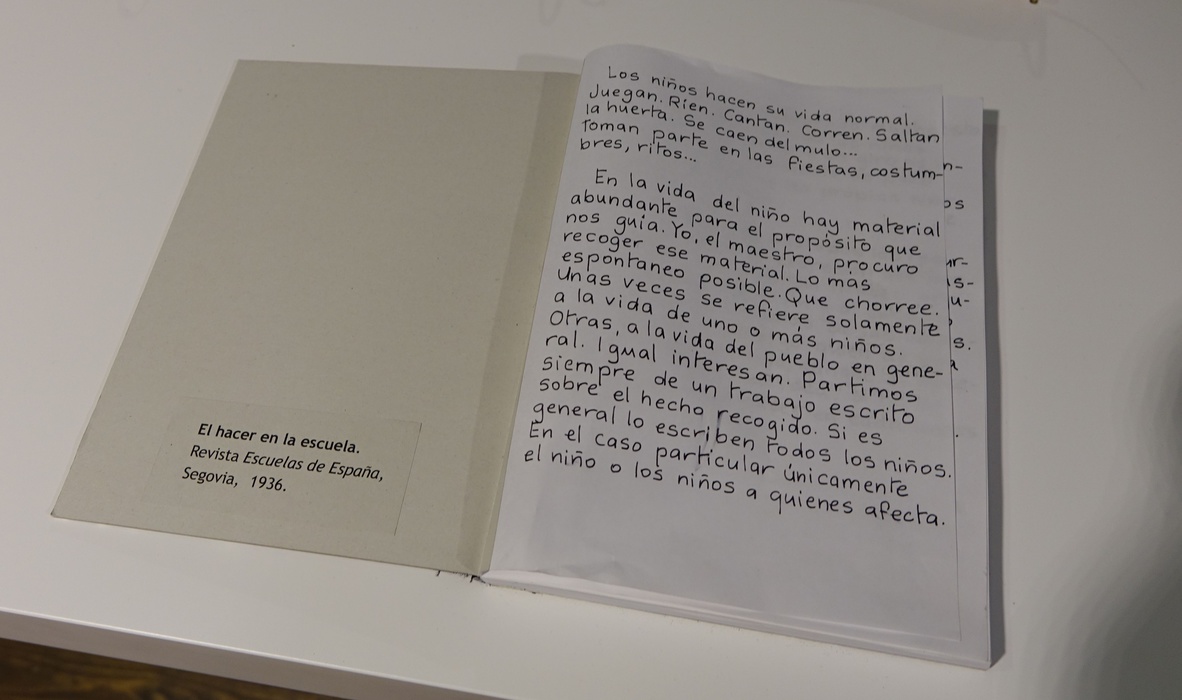 El hacer en la escuela.
Revista Escuelas de España,
Segovia, 1936.
Los niños hacen su vida normal.
Juegan. Ríen. Cantan. Corren. Saltan
la huerta. Se caen del mulo...
Toman parte en las fiestas, costum-
bres, ritos...
En la vida del niño hay material
abundante para el propósito que
nos guía. Yo, el maestro, procuro
recoger ese material. Lo mas
espontaneo posible. Que chorree.
Unas veces se refiere solamente
a la vida de uno o más niños.
Otras, a la vida del pueblo en gene-
ral. Igual interesan. Partimos
siempre de un trabajo escrito
sobre el hecho recogido. Si es
general lo escriben todos los niños.
En el caso particular únicamente
el niño o los niños a quienes afecta.